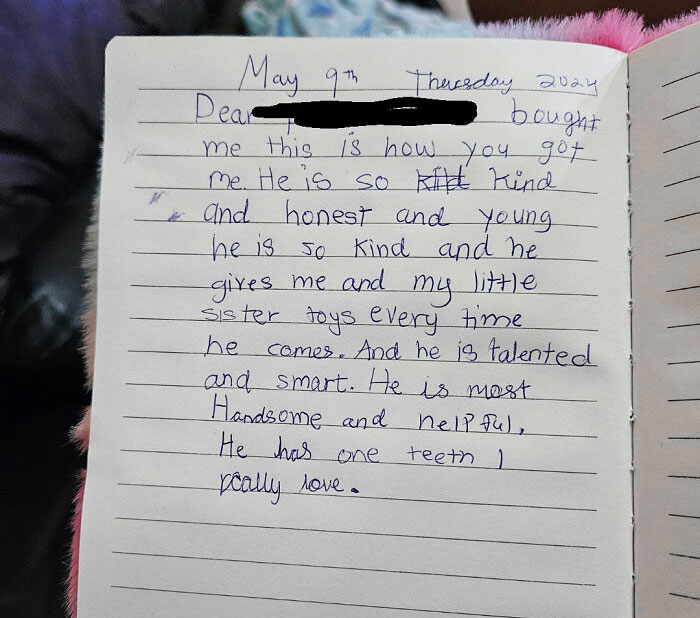 May 9th Thursday 2024
Dear bought
me this is how you got
me. He is so kind
and honest and young
he is so kind and he
gives me and my little
sister toys every time
he comes. And he is talented
and smart. He is most
Handsome and helpful,
He has one teeth I
really love.